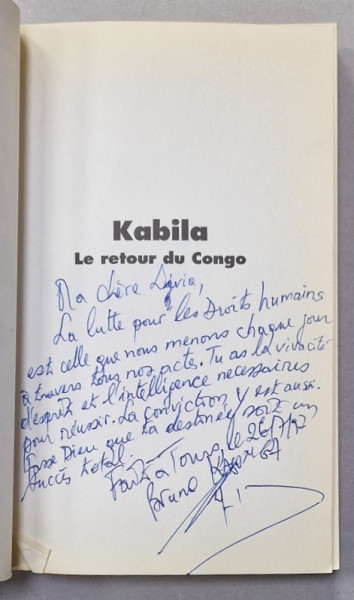 Kabila
Le retour du Congo
Ma chère
La lutte pour les Droits humains
est celle que nous menons chaque jour
à travers tous nos actes. Tu as la vivacité
d'esprit et l'intelligence necessaires
pour réussir. La conviction y est aussi.
Fasse Dieu que ta destinée soit un
succès total.
Fait à le
Bruno